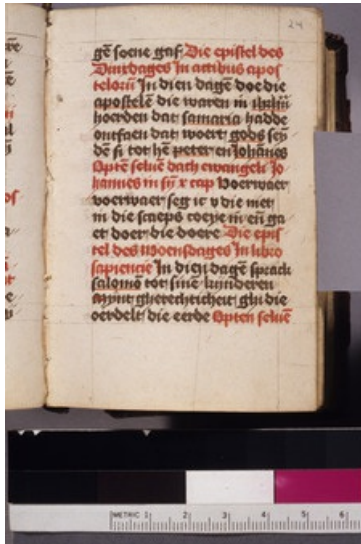 24
gē soene gaf Die epistel des
Dinxdages In actibus apos
telorū In dien dagē doe die
apostelē die waren in ihrlm̄
hoerden dat samaria hadde
ontfaen dat woert gods sen̄
dē si tot hē peter en Iohānes
Optē seluē dach ewangeli Jo
hannes in sijn x cap Voerwaer
voerwaer seg ic v die niet
in die scaeps coeye in en̄ ga
et doer die doere Die epis
tel des Woensdages In libro
sapiencie In dien dagē sprack
salomō tot sinē kinderen
Mynt gherechticheit ghi die
oerdelt die eerde Opten seluē
METRIC 1 2 3 4 5 6